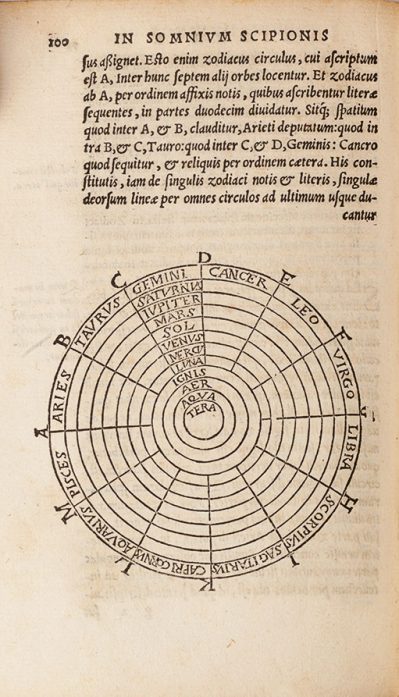 100 IN SOMNIVM SCIPIONIS
sus aßignet. Esto enim zodiacus circulus, cui ascriptum
est A, Inter hunc septem alij orbes locentur. Et zodiacus
ab A, per ordinem affixis notis, quibus ascribentur literæ
sequentes, in partes duodecim diuidatur. Sitq; spatium
quod inter A, & B, clauditur, Arieti deputatum: quod in
tra B, & C, Tauro: quod inter C, & D, Geminis: Cancro
quod sequitur, & reliquis per ordinem cætera. His con-
stitutis, iam de singulis zodiaci notis & literis, singulæ
deorsum lineæ per omnes circulos ad ultimum usque du-
cantur
D
C
GEMINI
CANCER
E
SATURNUS
IUPITER
MARS
SOL
VENUS
MERCU
LUNA
IGNIS
AER
AQUA
TERA
TAURUS
LEO
B
F
ARIES
VIRGO
A
LIBRA
PISCES
H
M
SCORPIUS
AQVARIUS
SAGITARIUS
I
L
CAPRICORNUS
K